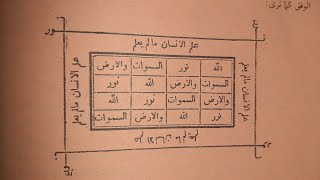 الوفق كما ترى:
علم الانسان مالم يعلم
الله نور السموات والارض
السموات والارض الله نور
والارض السموات نور الله
نور الله والارض السموات
علم الانسان مالم يعلم
علم الانسان مالم يعلم
علم الانسان مالم يعلم